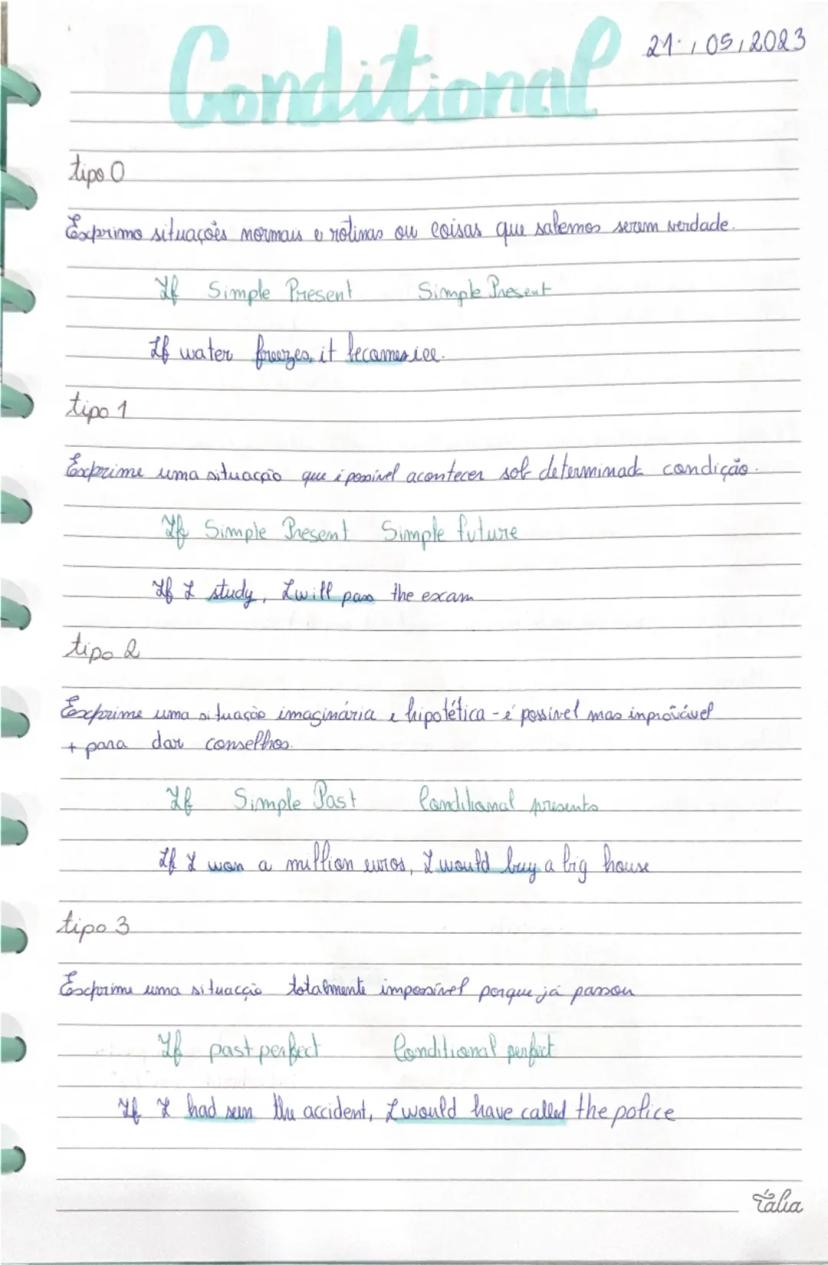 Conditional
21/05/2023
tipo 0
Exprime situações normais e rotinas ou coisas que sabemos serem verdade.
If Simple Present Simple Present
If water freezes, it becomes ice.
tipo 1
Exprime uma situacção que é possivel acontecer sob determinada condição.
If Simple Present Simple future
If I study, I will pass the exam
tipo 2
Exprime uma situação imaginária e hipotética - é possivel mas improvável
+ para dar conselhos.
If Simple Past Conditional presente
If I won a million euros, I would buy a big house
tipo 3
Exprime uma situacção totalmente impossível porque já passou
If past perfect Conditional perfect
If I had seen the accident, I would have called the police
Tália